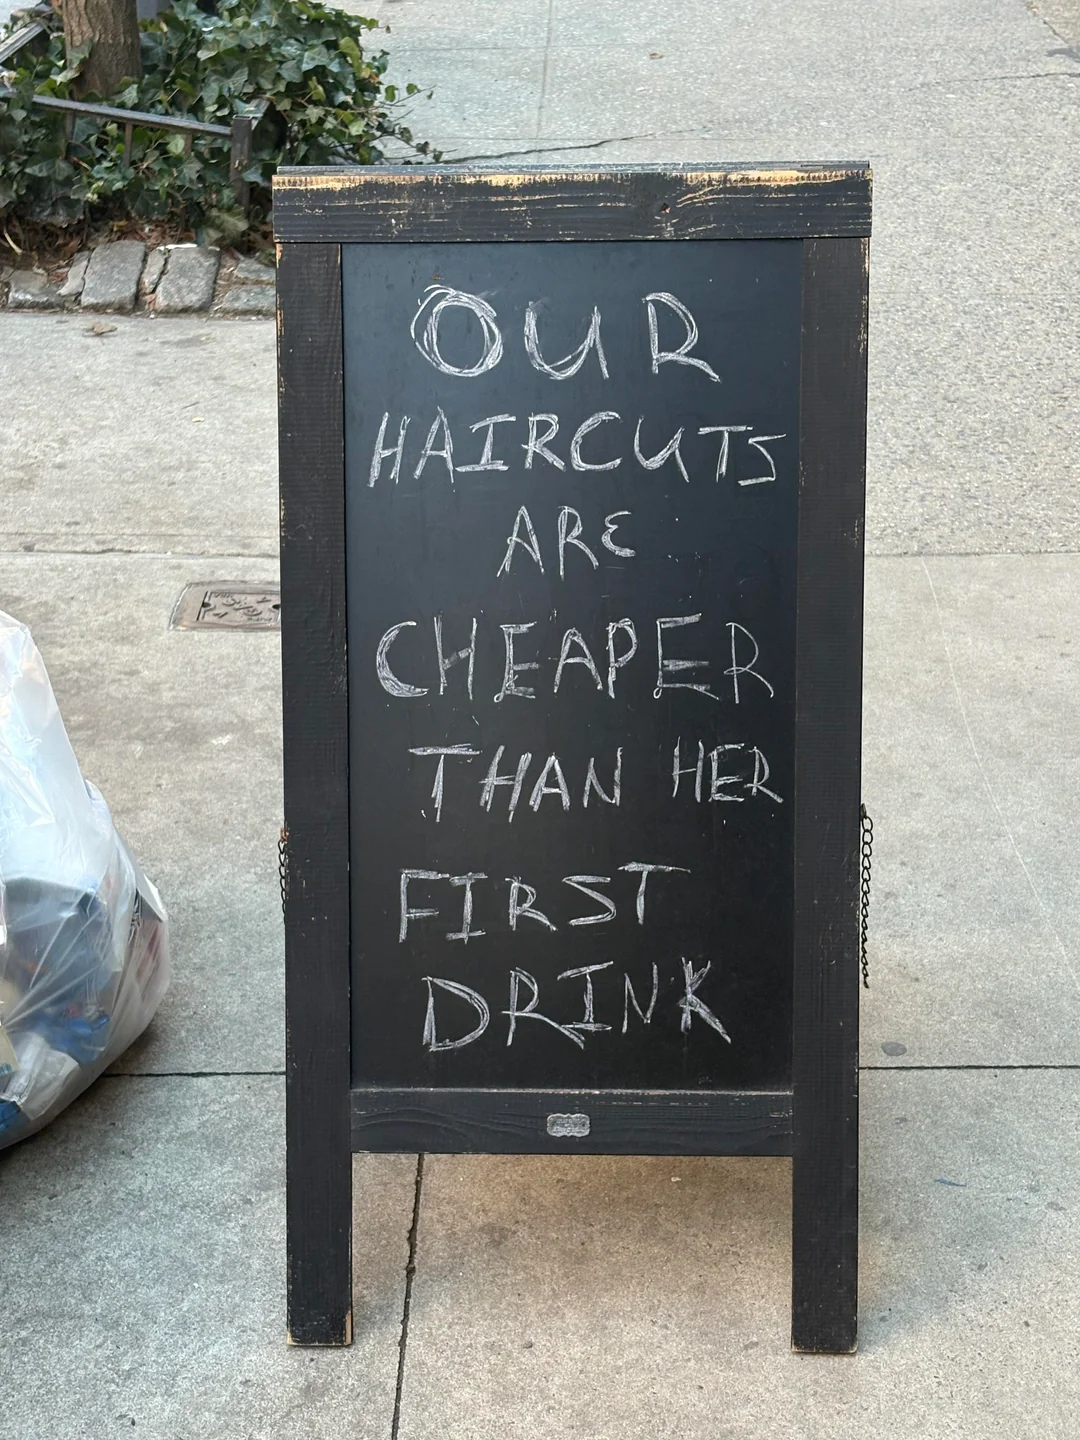 OUR
HAIRCUTS
ARE
CHEAPER
THAN HER
FIRST
DRINK